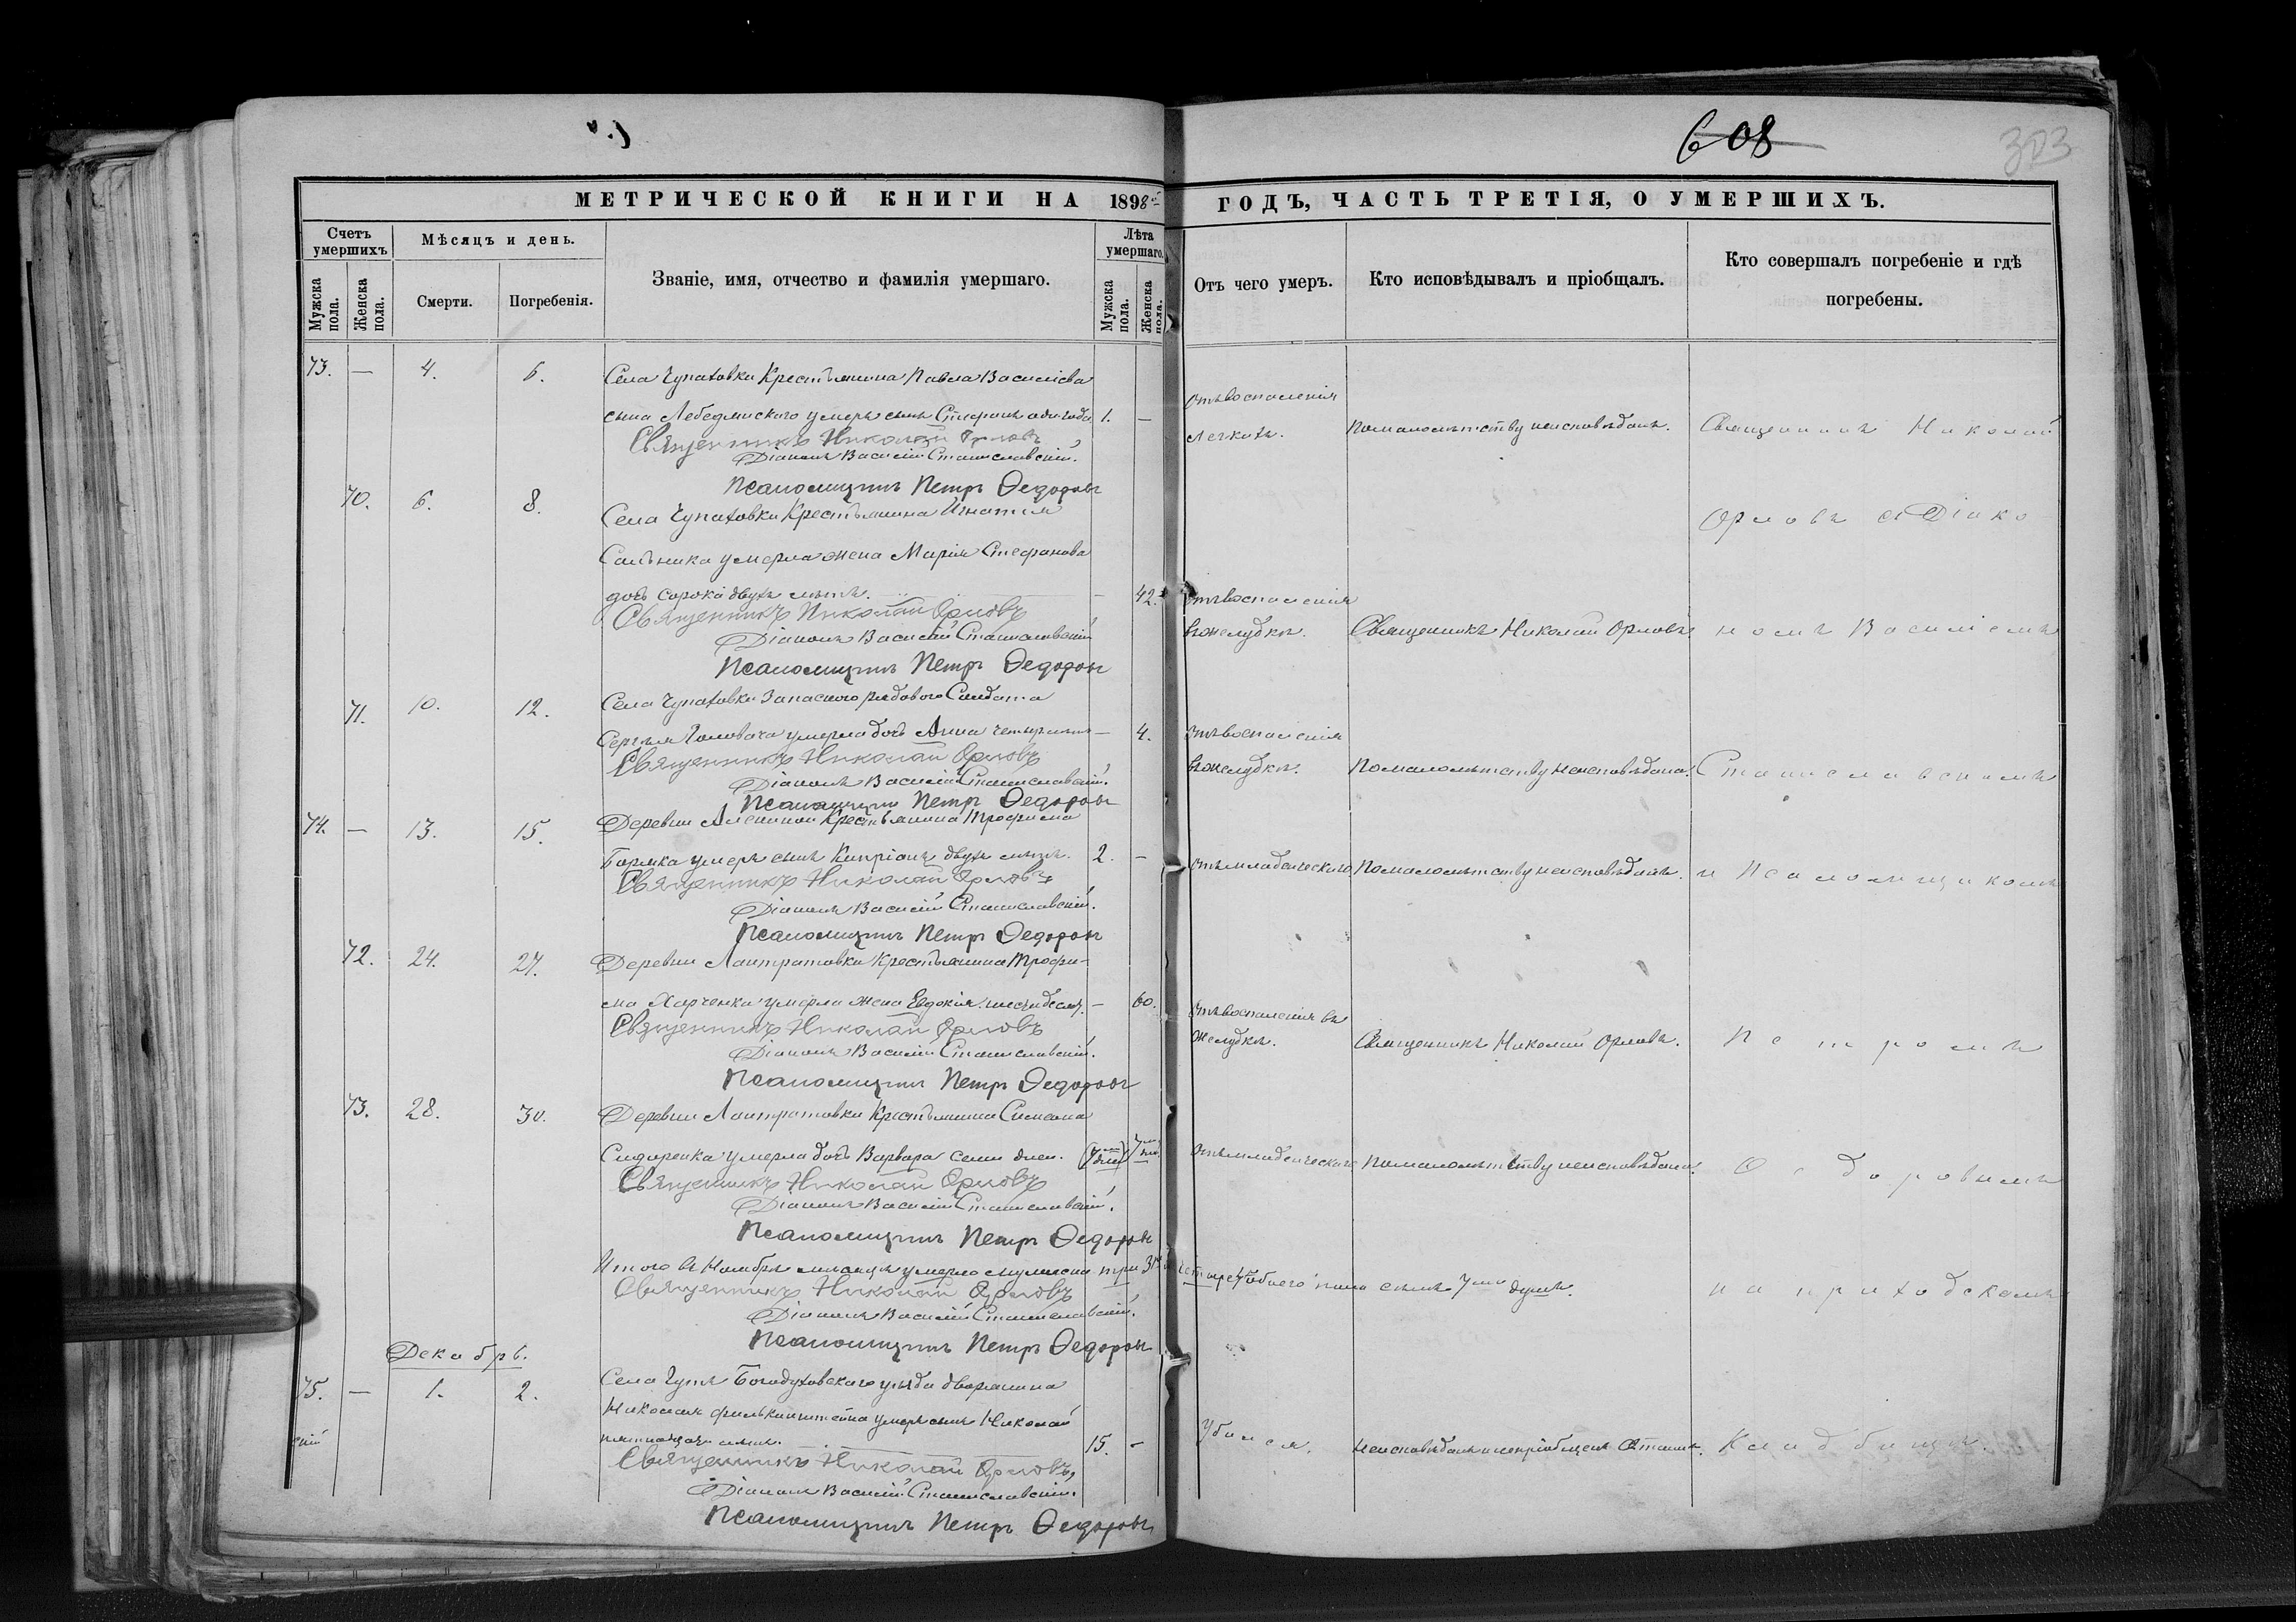 608
303
МЕТРИЧЕСКОЙ КНИГИ НА 1898й
ГОДЪ, ЧАСТЬ ТРЕТІЯ, О УМЕРШИХЪ.
Счетъ умершихъ
Мѣсяцъ и день.
Званіе, имя, отчество и фамилія умершаго.
Лѣта умершаго.
Мужска пола.
Женска пола.
Смерти.
Погребенія.
Мужска пола.
Женска пола.
Отъ чего умеръ.
Кто исповѣдывалъ и пріобщалъ.
Кто совершалъ погребеніе и гдѣ
погребены.
73. — 4. 6. Села Чупаховки Крестьянина Павла Василіева
сына Лебединскаго умеръ сынъ Стефанъ 1. —
отъ воспаленія
легкихъ. По малолѣтству неисповѣданъ. Священникъ Николай
Священникъ Николай Орловъ
Діаконъ Василій Станиславскій.
Псаломщикъ Петръ Ѳедоровъ
70. 6. 8. Села Чупаховки Крестьянина Игнатія
Орловъ съ Діако
Сальника умерла жена Марія Стефанова
дочь сорока двухъ лѣтъ. — 42.
отъ воспаленія
въ желудкѣ. Священникъ Николай Орловъ номъ Василіемъ
Священникъ Николай Орловъ
Діаконъ Василій Станиславскій
Псаломщикъ Петръ Ѳедоровъ
71. 10. 12. Села Чупаховки Запаснаго рядового Солдата
Сергѣя Головача умерла дочь Анна четырехъ — 4.
отъ воспаленія
въ желудкѣ. По малолѣтству неисповѣдана. Станиславскимъ
Священникъ Николай Орловъ
Діаконъ Василій Станиславскій.
Псаломщикъ Петръ Ѳедоровъ
74. — 13. 15. Деревни Крестьянина Трофима
умеръ сынъ Кипріанъ двухъ лѣтъ. 2. —
отъ младенческаго По малолѣтству неисповѣданъ. и Псаломщикомъ
Священникъ Николай Орловъ
Діаконъ Василій Станиславскій.
Псаломщикъ Петръ Ѳедоровъ
72. 24. 27. Деревни Лантратовки Крестьянина Трофи-
ма Харченка умерла жена Евдокія шестидесят. — 60.
отъ воспаленія въ
желудкѣ. Священникъ Николай Орловъ. Петромъ
Священникъ Николай Орловъ
Діаконъ Василій Станиславскій.
Псаломщикъ Петръ Ѳедоровъ
73. 28. 30. Деревни Лантратовки Крестьянина Симеона
Сидоренка умерла дочь Варвара семи дней. (7 дней)
отъ младенческаго По малолѣтству неисповѣдана. Ѳедоровымъ
Священникъ Николай Орловъ
Діаконъ Василій Станиславскій.
Псаломщикъ Петръ Ѳедоровъ
Итого въ Ноябрѣ мѣсяцѣ умерло мужеска три 3 обоего пола семь 7 душъ.
на приходскомъ
Священникъ Николай Орловъ
Діаконъ Василій Станиславскій.
Псаломщикъ Петръ Ѳедоровъ
Декабрь.
75. — 1. 2. Села Богодуховскаго уѣзда дворянина
Николая умеръ сынъ Николай
пятнадцати лѣтъ. 15. —
Убился. Неисповѣданъ и непріобщенъ Св. таинъ. Кладбищѣ.
Священникъ Николай Орловъ,
Діаконъ Василій Станиславскій.
Псаломщикъ Петръ Ѳедоровъ